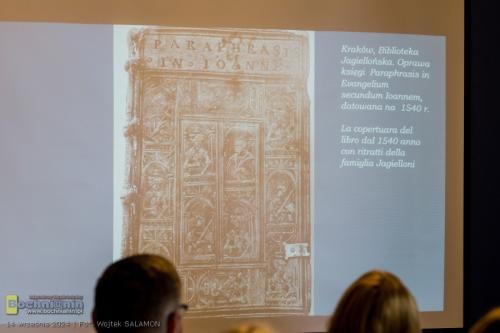 PARAPHRASI
IN IOANNE
Kraków, Biblioteka
Jagiellońska. Oprawa
księgi Paraphrasis in
Evangelium
secundum Ioannem,
datowana na 1540 r.
La copertuara del
libro dal 1540 anno
con ritratti della
famiglia Jagielloni
Bochnianin
www.bochnianin.pl
14 września 2024 | Fot. Wojtek SALAMON